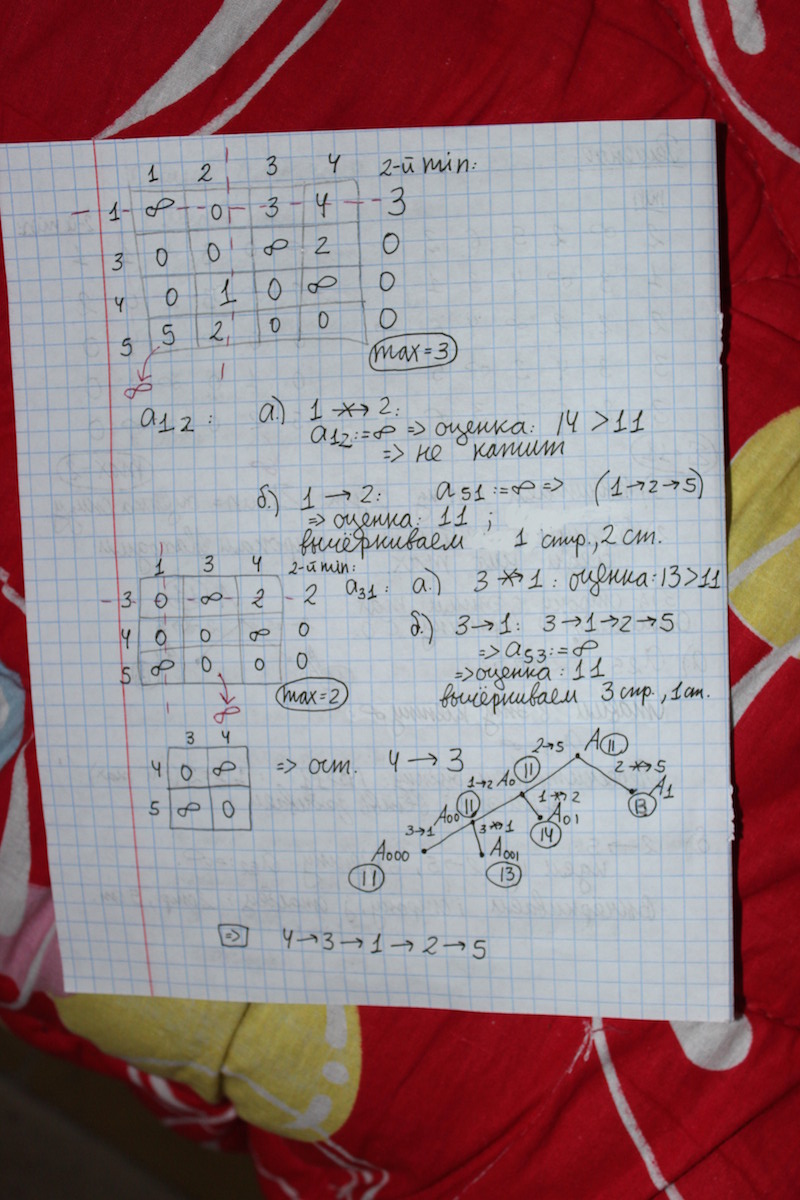 1 2 3 4 2-й min:
1 ∞ 0 3 4 3
3 0 0 ∞ 2 0
4 0 1 0 ∞ 0
5 5 2 0 0 0
∞
max = 3
a12 : а.) 1 ↛ 2:
a12 := ∞ => оценка: 14 > 11
=> не катит
б.) 1 → 2: a51 := ∞ => (1→2→5)
=> оценка: 11 ;
вычёркиваем 1 стр., 2 ст.
1 3 4 2-й min:
3 0 ∞ 2 2
4 0 0 ∞ 0
5 ∞ 0 0 0
∞
max = 2
a31 : а.) 3 ↛ 1 : оценка: 13 > 11
б.) 3→1: 3→1→2→5
=> a53 := ∞
=> оценка: 11
вычёркиваем 3 стр., 1 ст.
3 4
4 0 ∞
5 ∞ 0
=> ост. 4 → 3
2→5 A 11
1→2 A0 11 2↛5 A1 13
A00 11 1↛2 A01 14
3→1 3↛1
A000 A001
11 13
=> 4→3→1→2→5